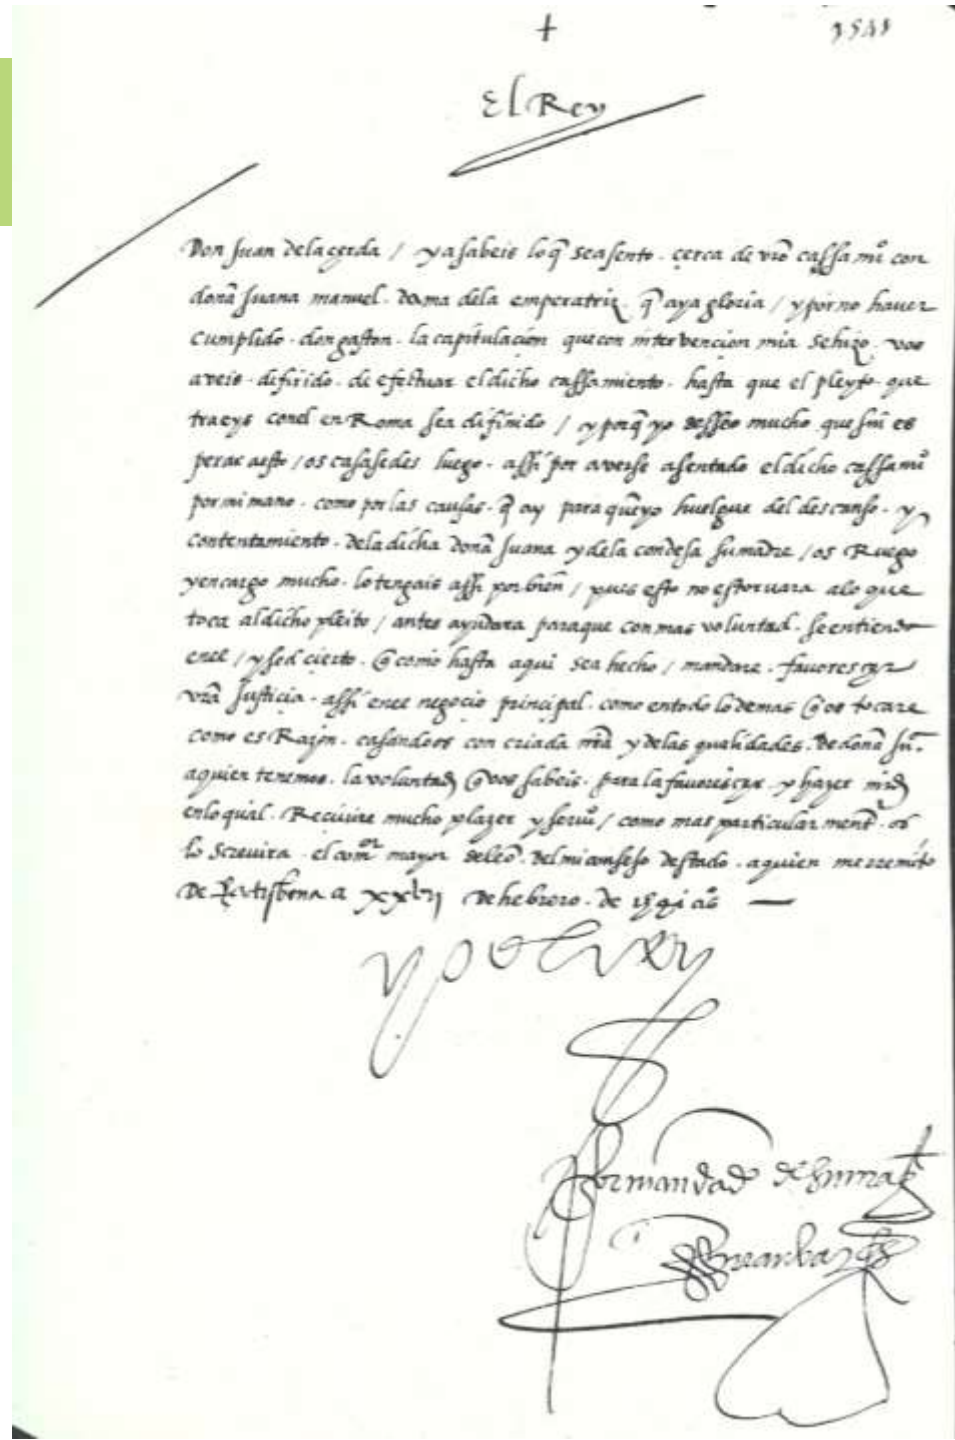 +
1541
El Rey
Don Juan dela çerda / ya sabeis lo q̄ se asento. çerca de vr̄o cassami͂o con
doña Juana manuel. dama dela emperatriz. q̄ aya gloria / y por no haver
cumplido. don gaston. la capitulaçion que con intervencion mia se hizo. vos
aveis. diferido. de efectuar el dicho cassamiento. hasta que el pleyto. que
traeys conel en Roma sea difinido / y porq̄ yo desseo mucho que sin es
perar aesto / os casasedes luego. assi por averse asentado el dicho cassami͂o
por mi mano. como por las causas. q̄ ay para que yo huelgue del descanso. y
contentamiento. dela dicha doña Juana y dela condesa su madre / os Ruego
y encargo mucho. lo tengais assi por bien / pues esto no estorvara alo que
toca al dicho pleito / antes ayudara para que con mas voluntad. se entienda
enel / y sed cierto. q̄ como hasta aqui se a hecho / mandare. favoresçer
vr̄a Justiçia. assi enel negoçio prinçipal. como en todo lo demas q̄ os tocare
como es Razon. casandoos con criada nr̄a y delas qualidades. de doña Ju.ª
a quien tenemos. la voluntad q̄ vos sabeis. para la favoresçer. y hazer md
enlo qual. Reçivire mucho plazer y servi͂o / como mas particularmente. os
lo screvira. el comor mayor de leon. del mi consejo destado. a quien me rremito
De Ratisbona a xxvij de hebrero. de 1541 as
yo el rey